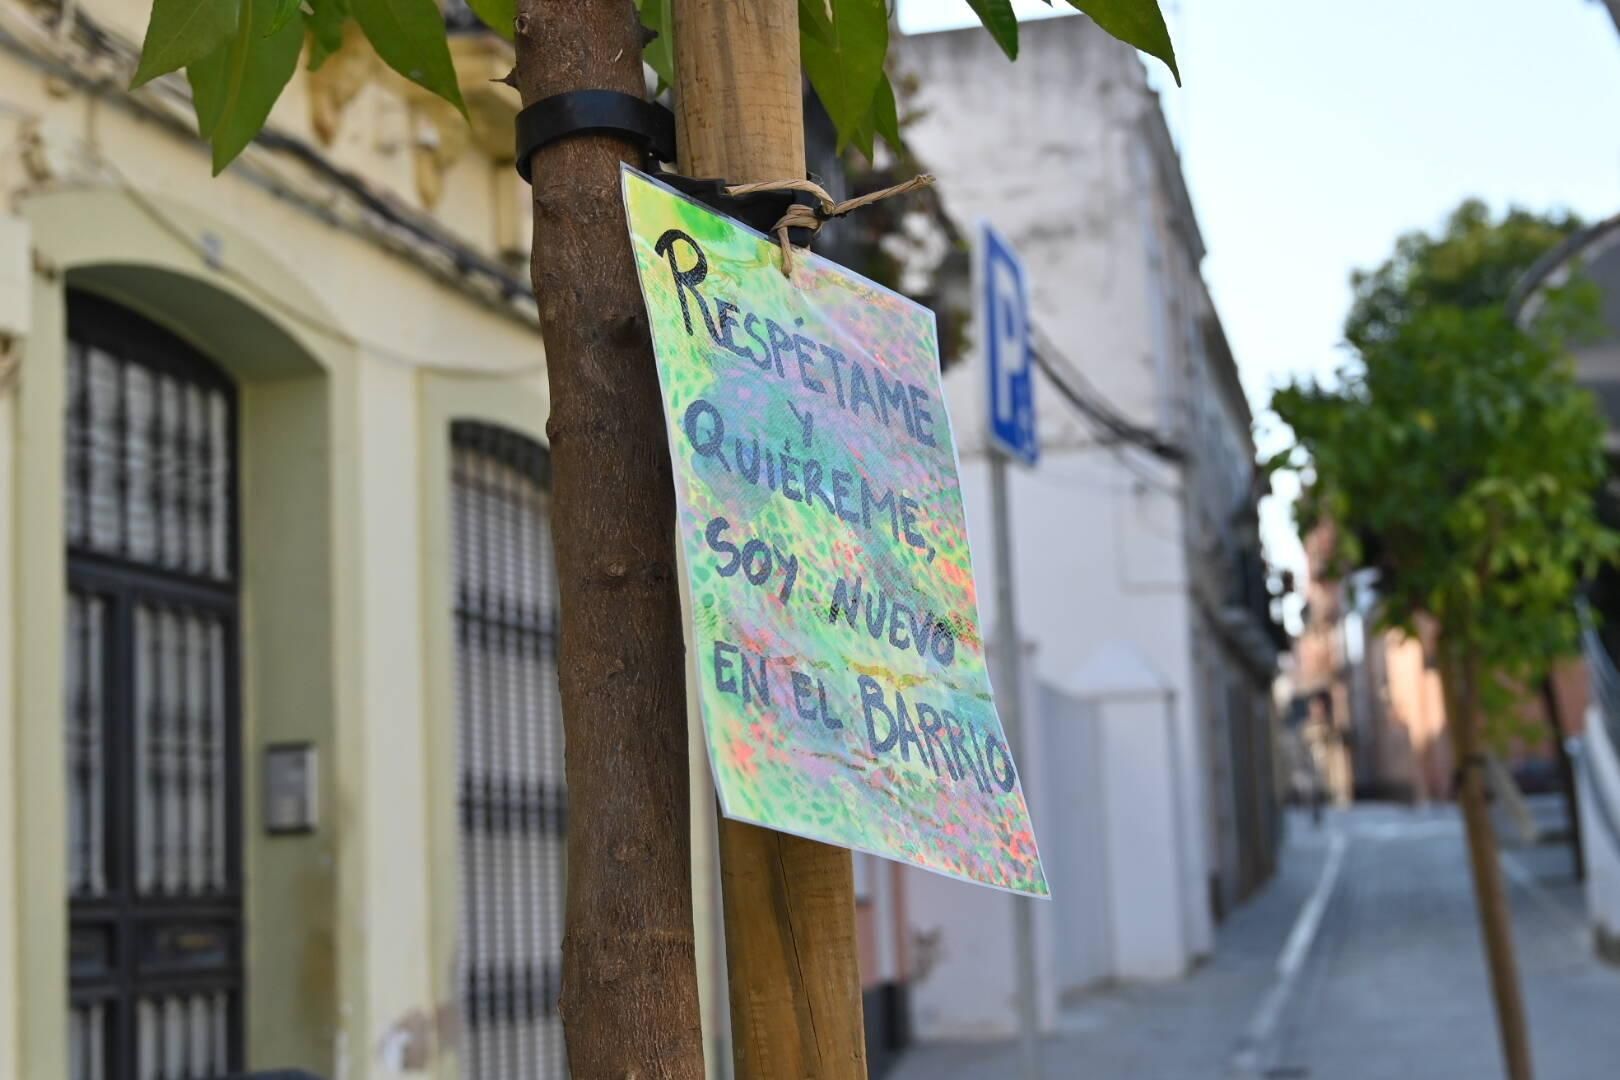 RESPÉTAME
Y
QUIÉREME,
SOY NUEVO
EN EL BARRIO
P